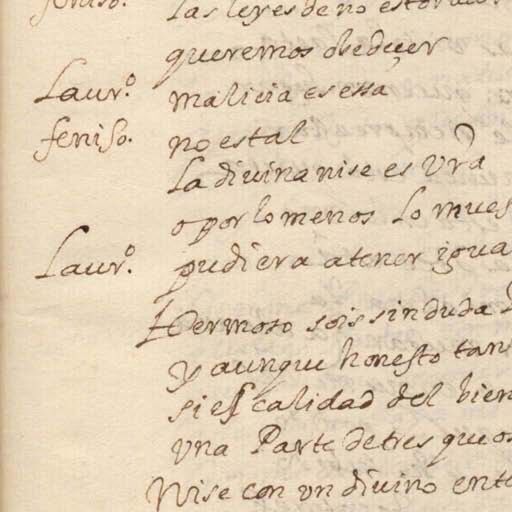 feniso. las leyes de no estor
queremos obedeçer
Laurº. malicia es essa
feniso. no es tal
la diuina nise es vrã
o por lo menos lo mues
Laurº. pudiera a tener igua
Hermoso sois sin duda
y aunque honesto tan
si es calidad del bien
vna Parte de tres que os
Nise con vn diuino ente